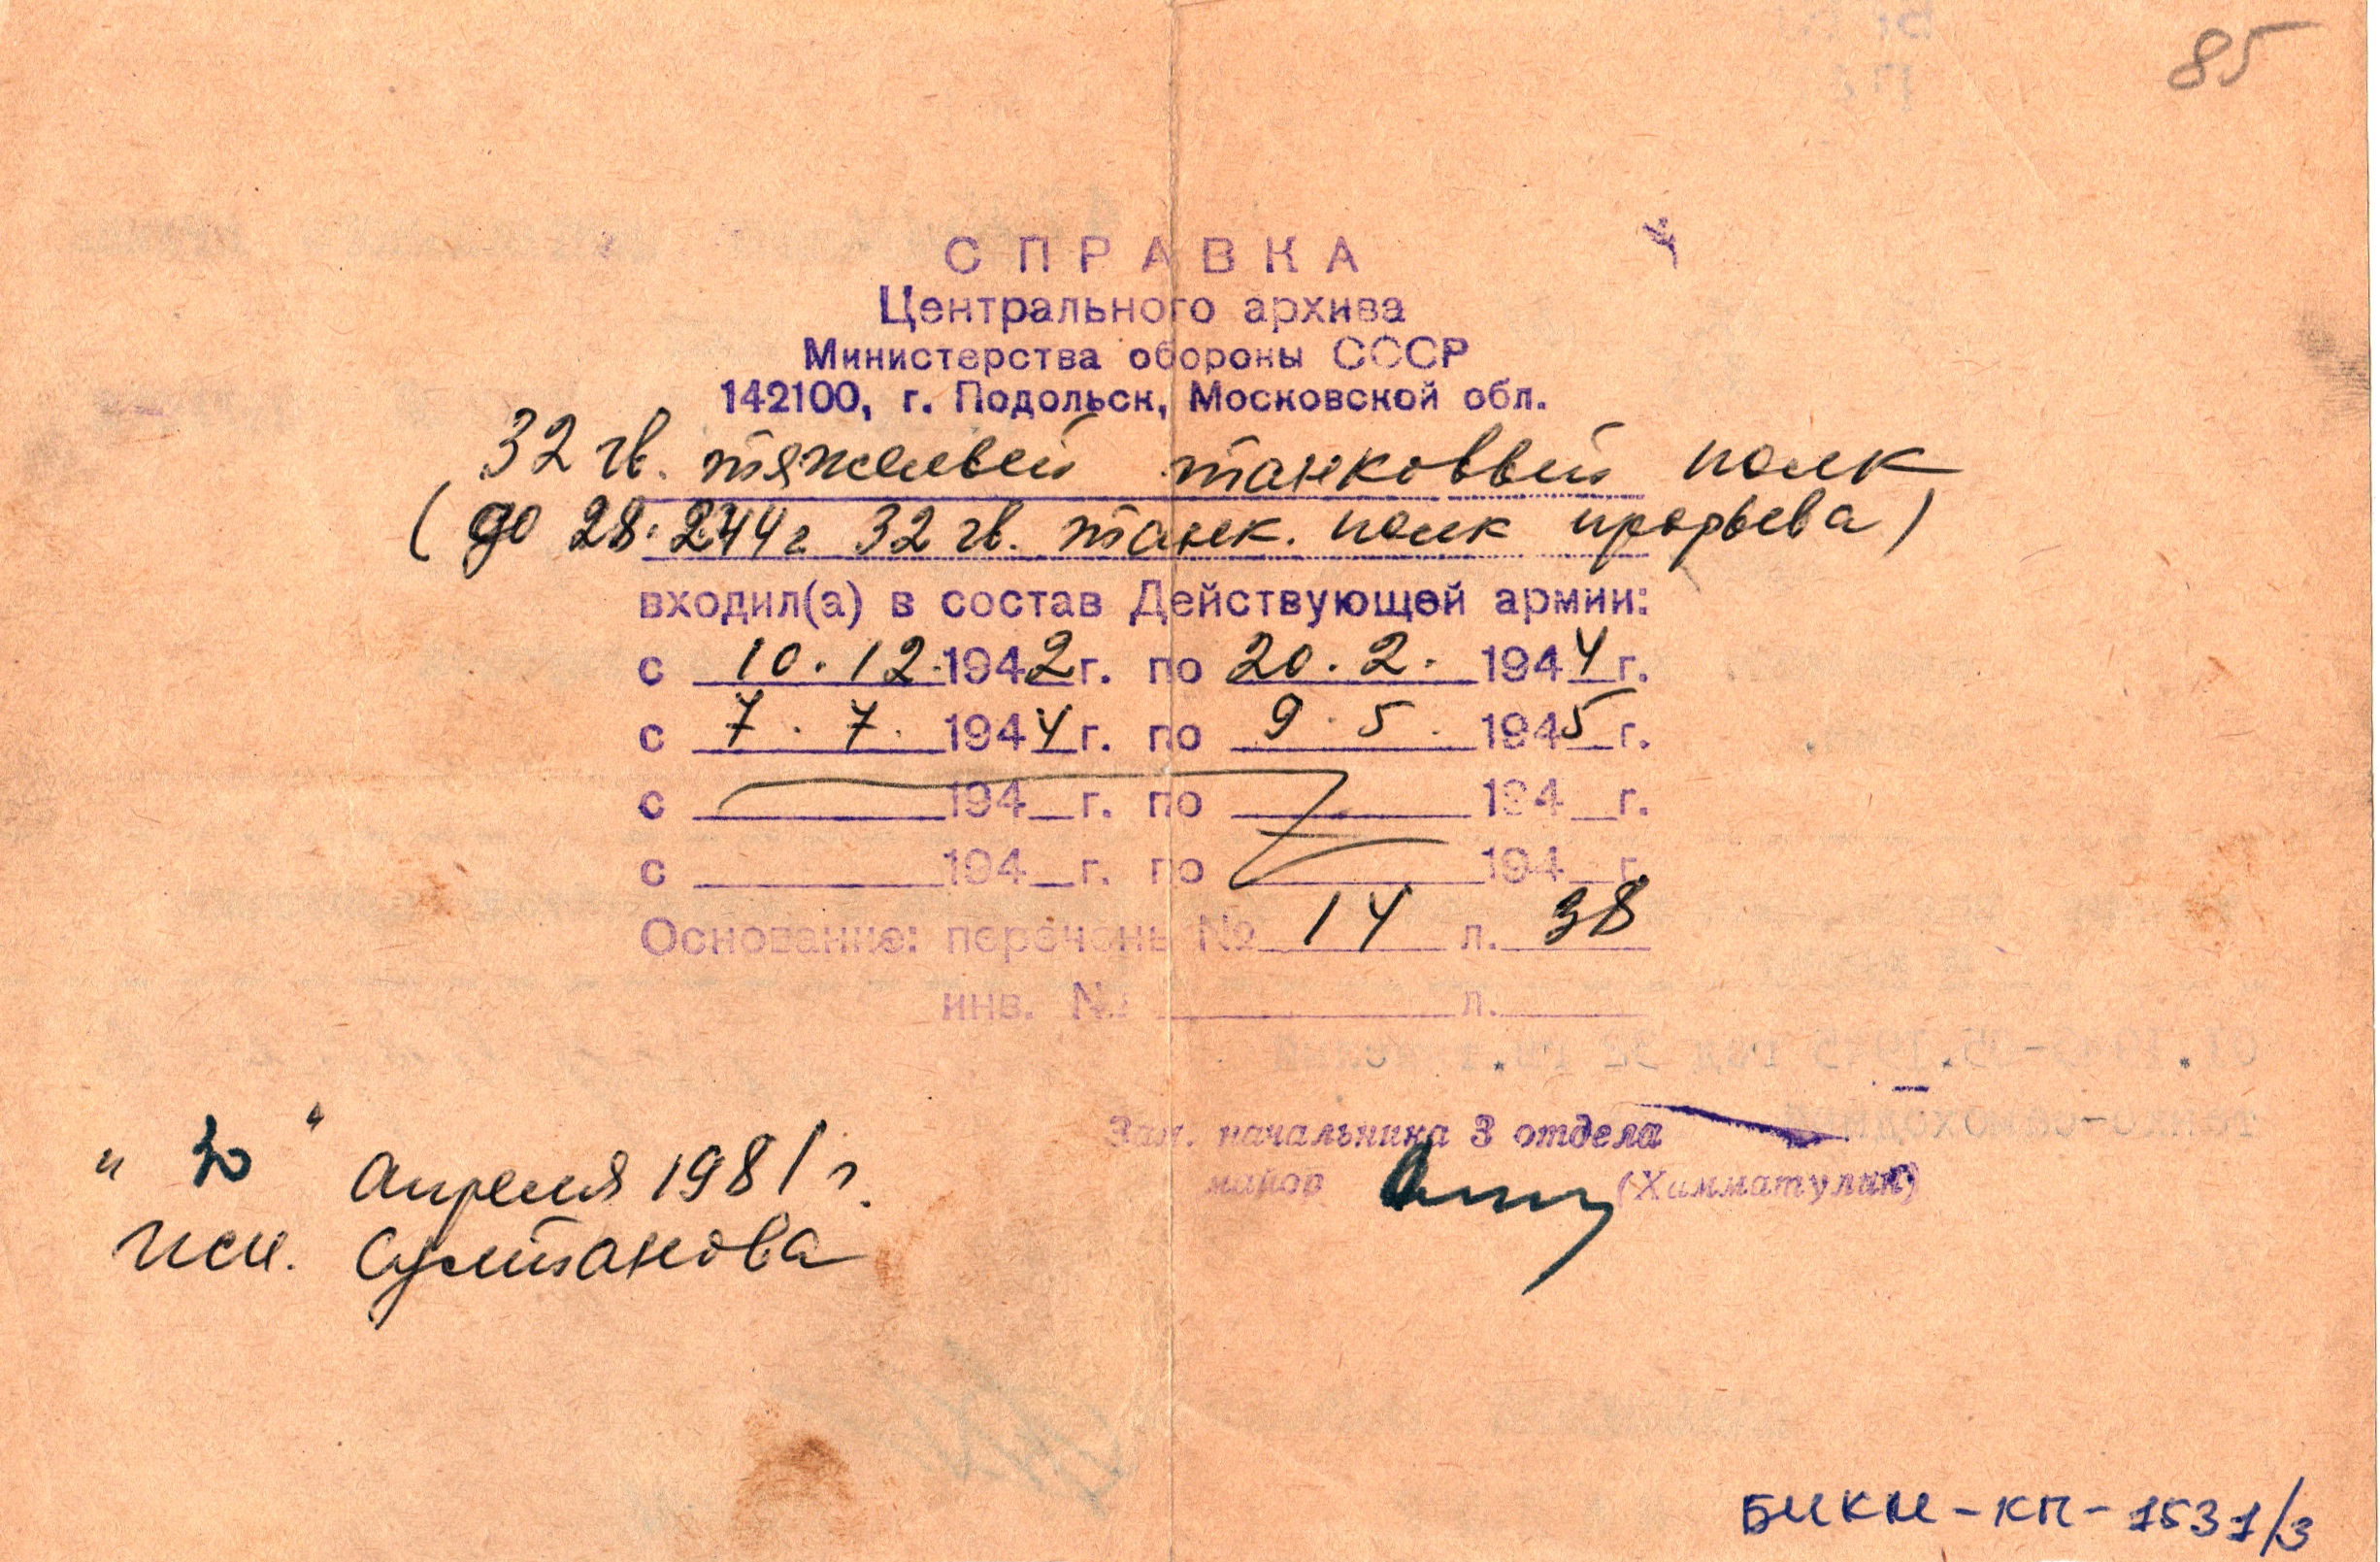 85
СПРАВКА
Центрального архива
Министерства обороны СССР
142100, г. Подольск, Московской обл.
32 гв. тяжелый танковый полк
(до 28.2.44 г 32 гв. танк. полк прорыва)
входил(а) в состав Действующей армии:
с 10.12.1942 г. по 20.2.1944 г.
с 7.7.1944 г. по 9.5.1945 г.
с ____194__г. по ____194__г.
с ____194__г. по ____194__г.
Основание: перечень № 14 л. 38
инв. № ____ л. ____
Зам. начальника 3 отдела
майор (Химматулин)
" " апреля 1981 г.
исп. Султанова
БИКМ-КП-1531/3